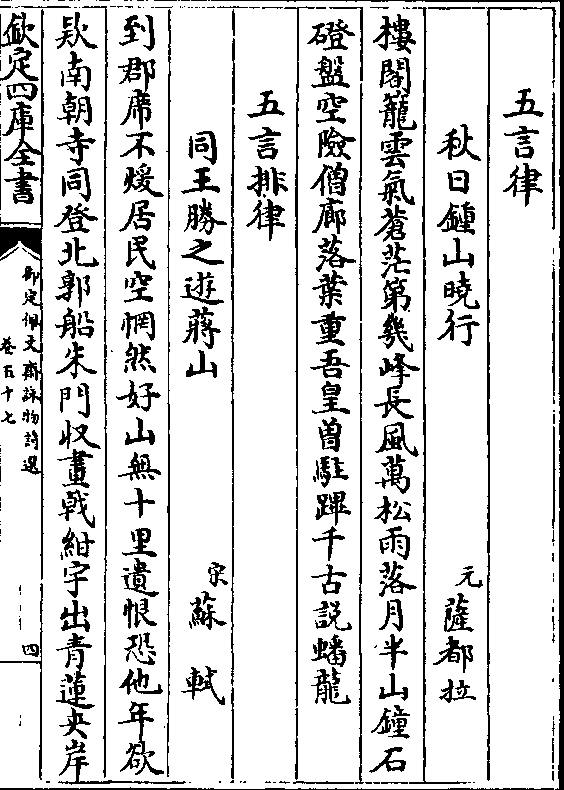 五言律
秋日鍾山曉行
元 薩都拉
樓閣籠雲氣蒼茫第幾峰長風萬松雨落月半山鐘石
磴盤空險僧廊落葉重吾皇曽駐蹕千古説蟠龍
五言排律
同王勝之遊蔣山
宋 蘇軾
到郡席不煖居民空惘然好山無十里遺恨恐他年欲
欵南朝寺同登北郭船朱門収畫戟紺宇出青蓮夾岸
欽定四庫全書
御定佩文齋詠物詩選
卷五十七
四